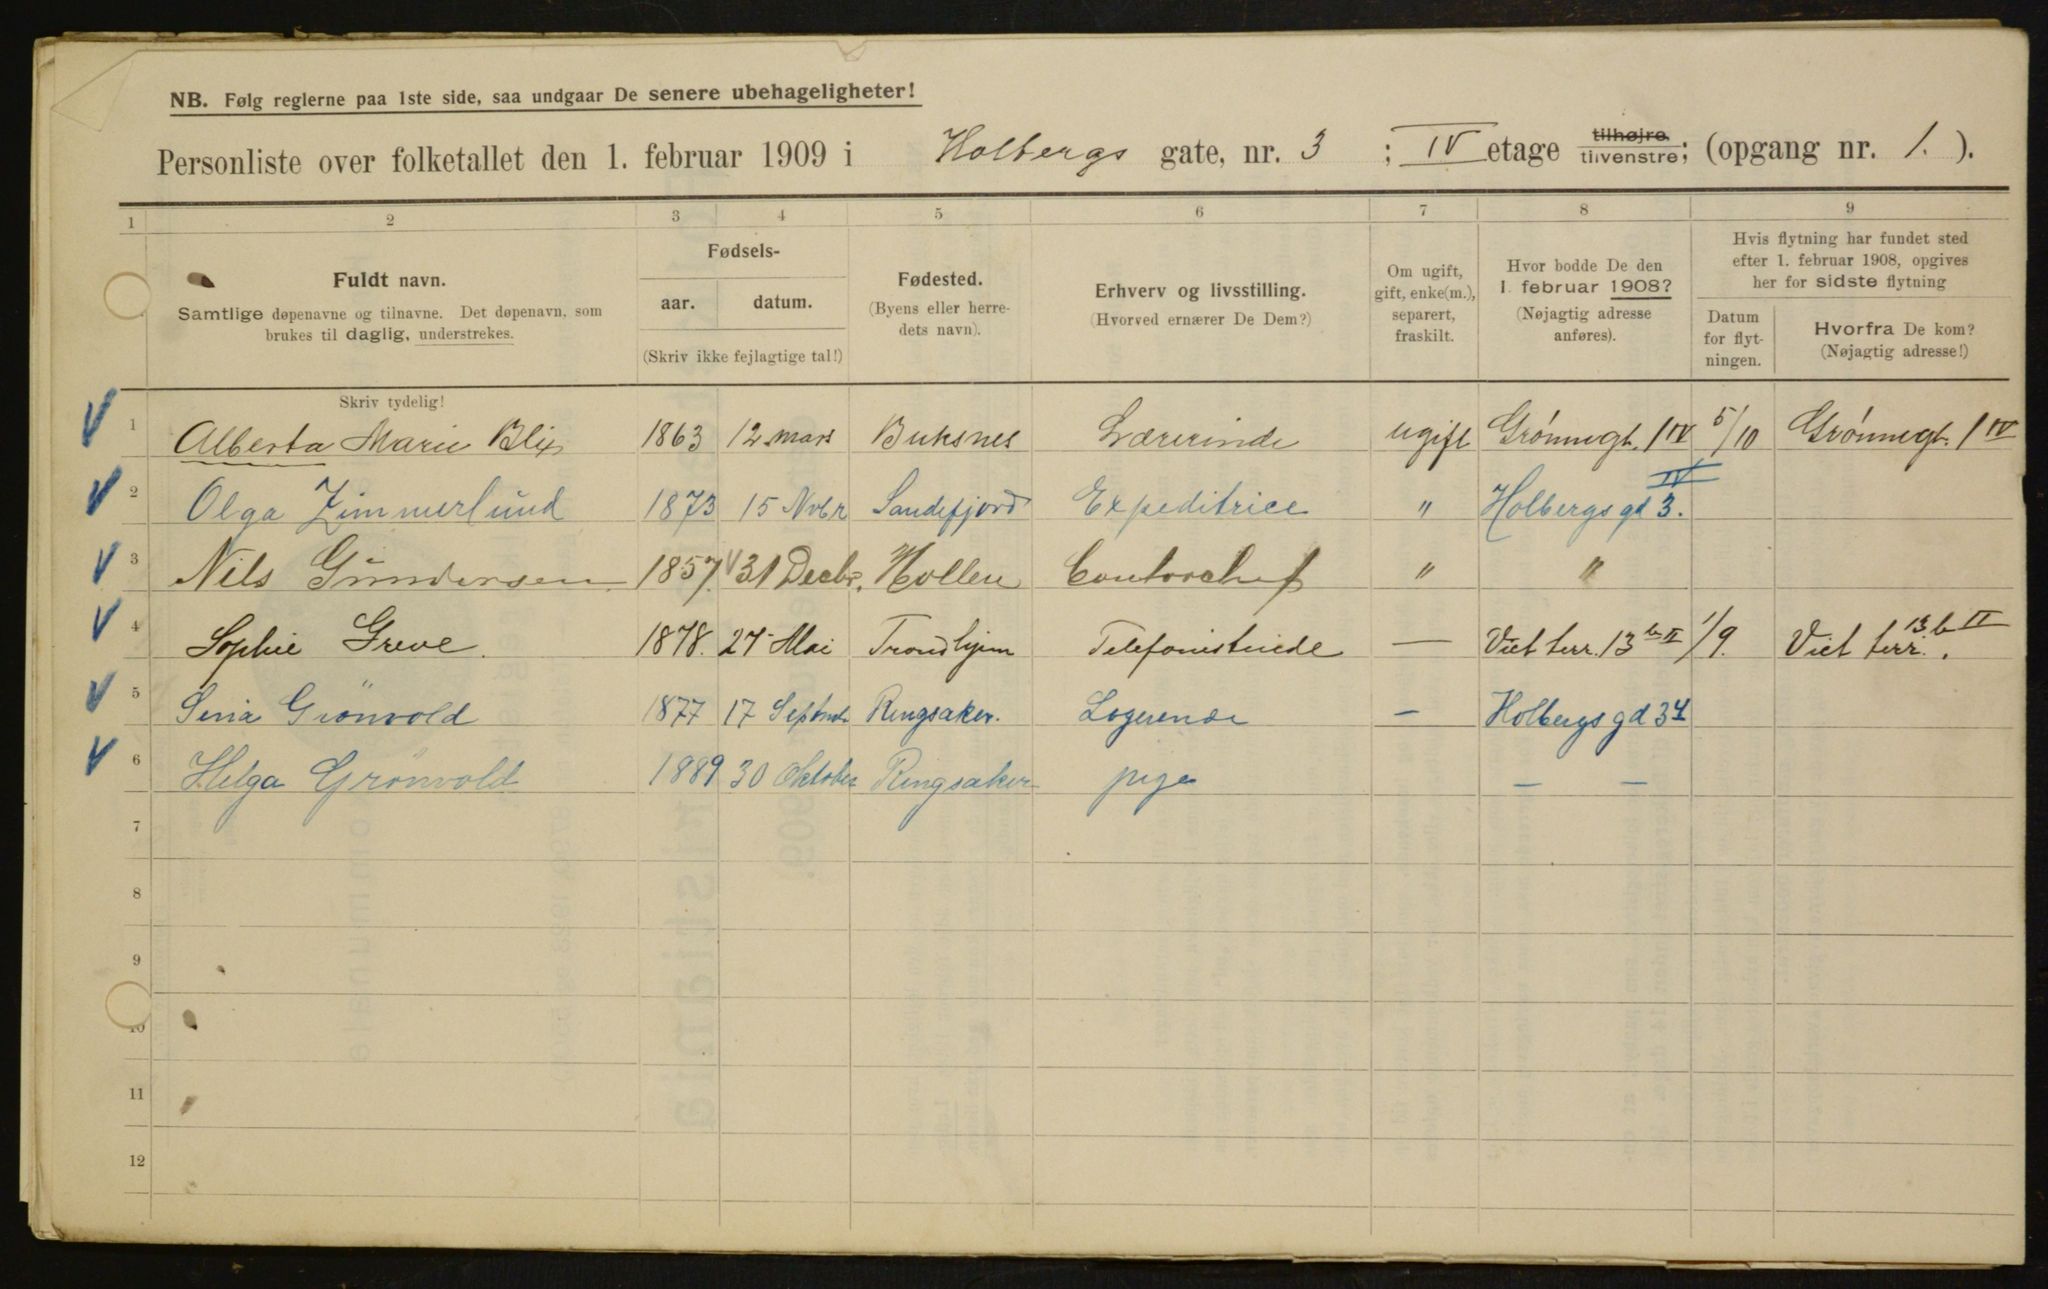 NB. Følg reglerne paa 1ste side, saa undgaar De senere ubehageligheter!
Personliste over folketallet den 1. februar 1909 i Holbergs gate, nr. 3 ; IV etage tilhøjre tilvenstre; (opgang nr. 1. ).
1 2 3 4 5 6 7 8 9
Fuldt navn.
Samtlige døpenavne og tilnavne. Det døpenavn, som
brukes til daglig, understrekes.
Fødsels-
aar. datum.
(Skriv ikke fejlagtige tal!)
Fødested.
(Byens eller herre-
dets navn).
Erhverv og livsstilling.
(Hvorved ernærer De Dem?)
Om ugift,
gift, enke(m.),
separert,
fraskilt.
Hvor bodde De den
1. februar 1908?
(Nøjagtig adresse
anføres).
Hvis flytning har fundet sted
efter 1. februar 1908, opgives
her for sidste flytning
Datum
for flyt-
ningen.
Hvorfra De kom?
(Nøjagtig adresse!)
Skriv tydelig!
1 Alberta Marie Blix 1863 12 mars Buksnes Lærerinde ugift Grønnegt. 1 IV 5/10 Grønnegt. 1 IV
2 Olga Zimmerlund 1873 15 Nvbr Sandefjord Expeditrice " Holbergs gd 3. IV
3 Nils Gundersen 1857. 31 Decbr. Hollen Contorchef " "
4 Sophie Greve. 1878. 27 Mai Trondhjem Telefonistinde — Vict terr. 13 b II 1/9. Vict terr. 13. b II
5 Grönvold 1877 17 Septmbr Ringsaker. Logerende — Holbergs gd 3 4
6 Helga Grönvold 1889 30 Oktober Ringsaker pige — —
7
8
9
10
11
12